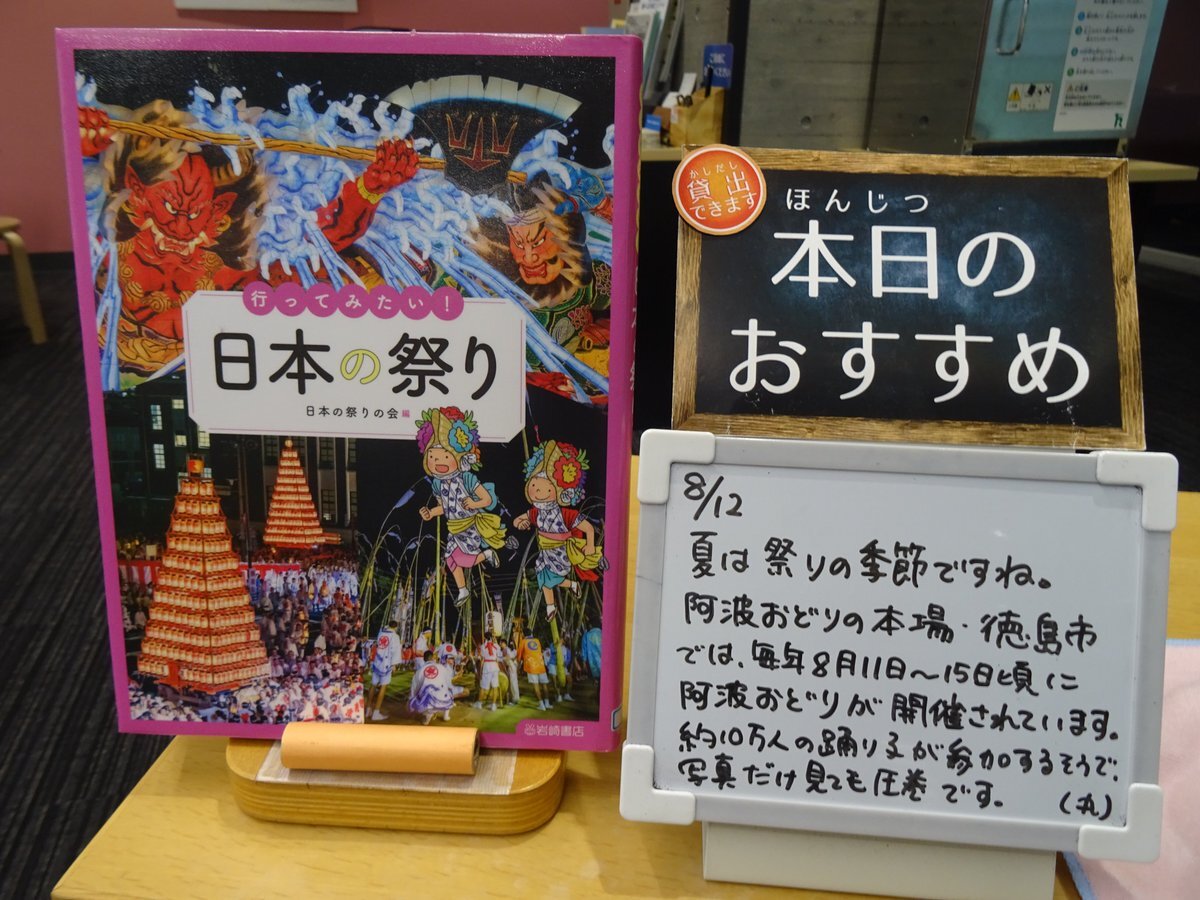 行ってみたい!
日本の祭り
日本の祭りの会 編
岩崎書店
かしだし
貸出
できます
ほんじつ
本日の
おすすめ
8/12
夏は祭りの季節ですね。
阿波おどりの本場・徳島市
では、毎年8月11日~15日頃に
阿波おどりが開催されています。
約10万人の踊り子が参加するそうで、
写真だけ見ても圧巻です。